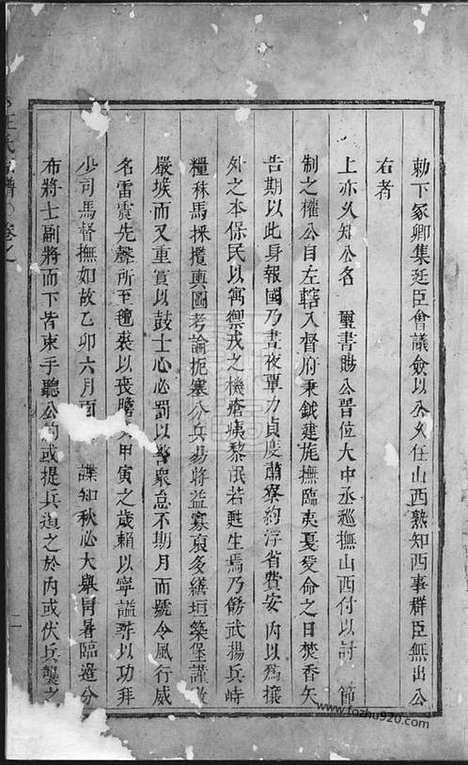 勅下冢卿集廷臣會議僉以公久任山西熟知西事群臣無出公
右者
上亦久知公名 璽書賜公晉位大中丞廵撫山西付以討 節
制之權公自左轄入督府秉鉞建旄撫臨夷夏受命之日焚香矢
告期以此身報國乃晝夜單力貞慶肅寮約浮省費安內以爲攘
外之本保民以寓禦戎之機瘡痍黎氓若甦生焉乃飭武揚兵峙
糧秣馬採攬輿圖考論扼塞分兵易將益寡裒多繕垣築堡謹
嚴堠而又重賞以鼓士心必罰以警衆怠不期月而號令風行威
名雷震先聲所至氊裘以喪膽 甲寅之歲賴以寧謐尋以功拜
少司馬督撫如故乙卯六月 諜知秋心大舉 暑臨邊分
布將士副將而下皆束手聽公約 或提兵 之於內或伏兵襲之
氏 譜 卷之
www.fozhu920.com